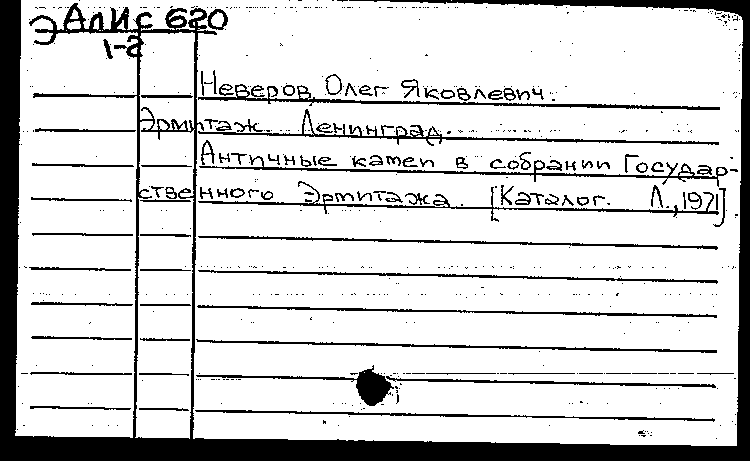 Э АлИс 620
1-2
Неверов, Олег Яковлевич.
Эрмитаж. Ленинград.
Античные камеи в собрании Государ-
ственного Эрмитажа. [Каталог. Л., 1971]